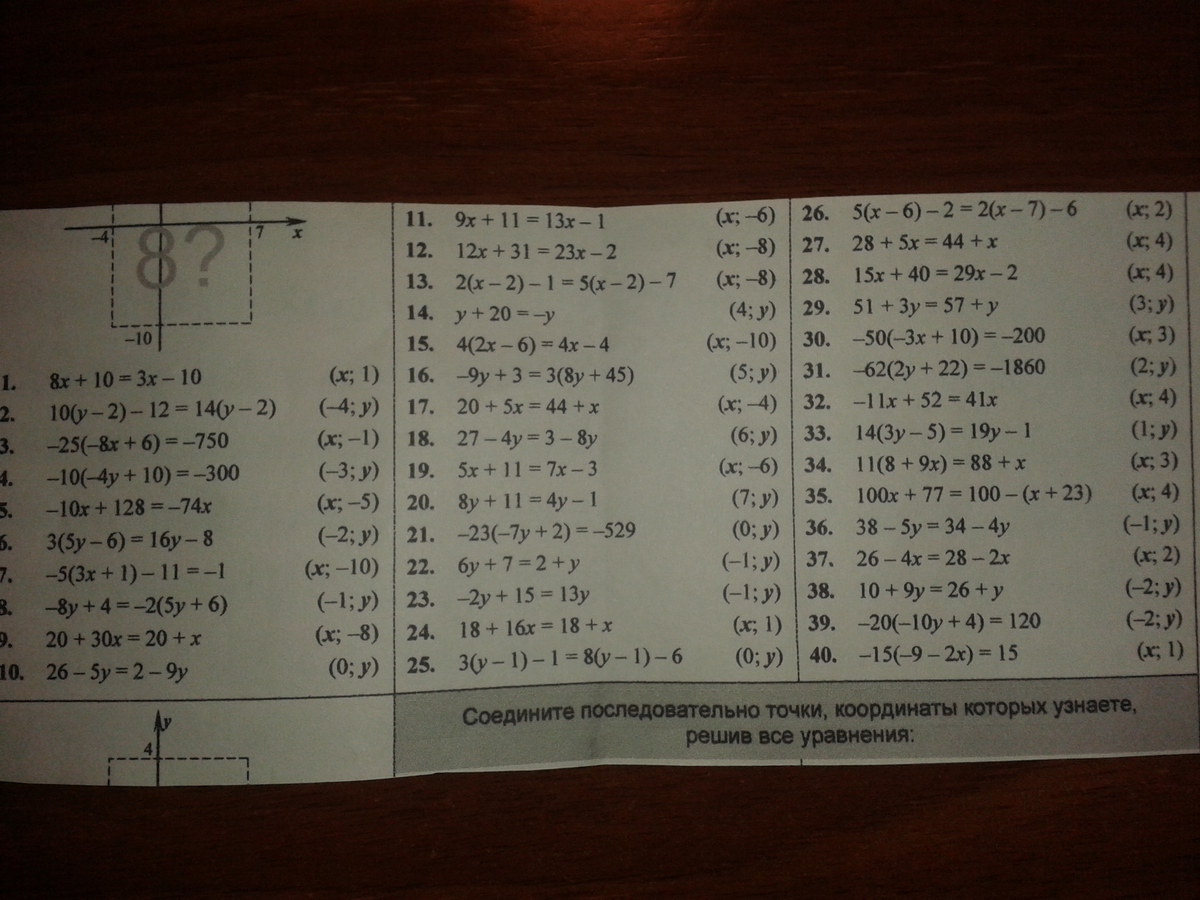 –4
7
x
8?
–10
1. 8x + 10 = 3x – 10 (x; 1)
2. 10(y – 2) – 12 = 14(y – 2) (–4; y)
3. –25(–8x + 6) = –750 (x; –1)
4. –10(–4y + 10) = –300 (–3; y)
5. –10x + 128 = –74x (x; –5)
6. 3(5y – 6) = 16y – 8 (–2; y)
7. –5(3x + 1) – 11 = –1 (x; –10)
8. –8y + 4 = –2(5y + 6) (–1; y)
9. 20 + 30x = 20 + x (x; –8)
10. 26 – 5y = 2 – 9y (0; y)
11. 9x + 11 = 13x – 1 (x; –6)
12. 12x + 31 = 23x – 2 (x; –8)
13. 2(x – 2) – 1 = 5(x – 2) – 7 (x; –8)
14. y + 20 = –y (4; y)
15. 4(2x – 6) = 4x – 4 (x; –10)
16. –9y + 3 = 3(8y + 45) (5; y)
17. 20 + 5x = 44 + x (x; –4)
18. 27 – 4y = 3 – 8y (6; y)
19. 5x + 11 = 7x – 3 (x; –6)
20. 8y + 11 = 4y – 1 (7; y)
21. –23(–7y + 2) = –529 (0; y)
22. 6y + 7 = 2 + y (–1; y)
23. –2y + 15 = 13y (–1; y)
24. 18 + 16x = 18 + x (x; 1)
25. 3(y – 1) – 1 = 8(y – 1) – 6 (0; y)
26. 5(x – 6) – 2 = 2(x – 7) – 6 (x; 2)
27. 28 + 5x = 44 + x (x; 4)
28. 15x + 40 = 29x – 2 (x; 4)
29. 51 + 3y = 57 + y (3; y)
30. –50(–3x + 10) = –200 (x; 3)
31. –62(2y + 22) = –1860 (2; y)
32. –11x + 52 = 41x (x; 4)
33. 14(3y – 5) = 19y – 1 (1; y)
34. 11(8 + 9x) = 88 + x (x; 3)
35. 100x + 77 = 100 – (x + 23) (x; 4)
36. 38 – 5y = 34 – 4y (–1; y)
37. 26 – 4x = 28 – 2x (x; 2)
38. 10 + 9y = 26 + y (–2; y)
39. –20(–10y + 4) = 120 (–2; y)
40. –15(–9 – 2x) = 15 (x; 1)
y
4
Соедините последовательно точки, координаты которых узнаете,
решив все уравнения: